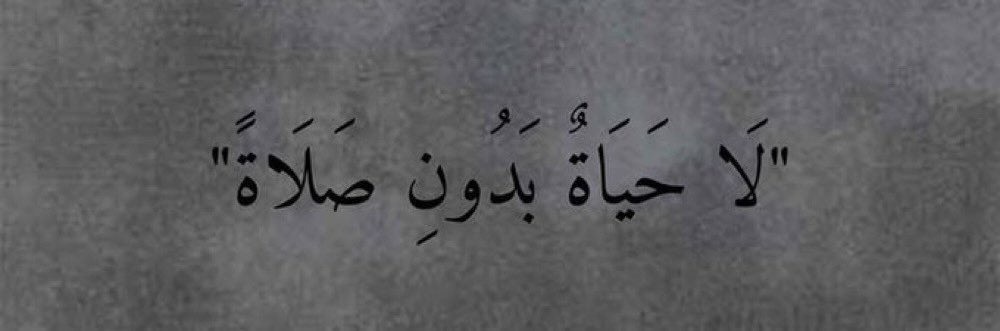 "لَا حَيَاةٌ بَدُونِ صَلَاةً"